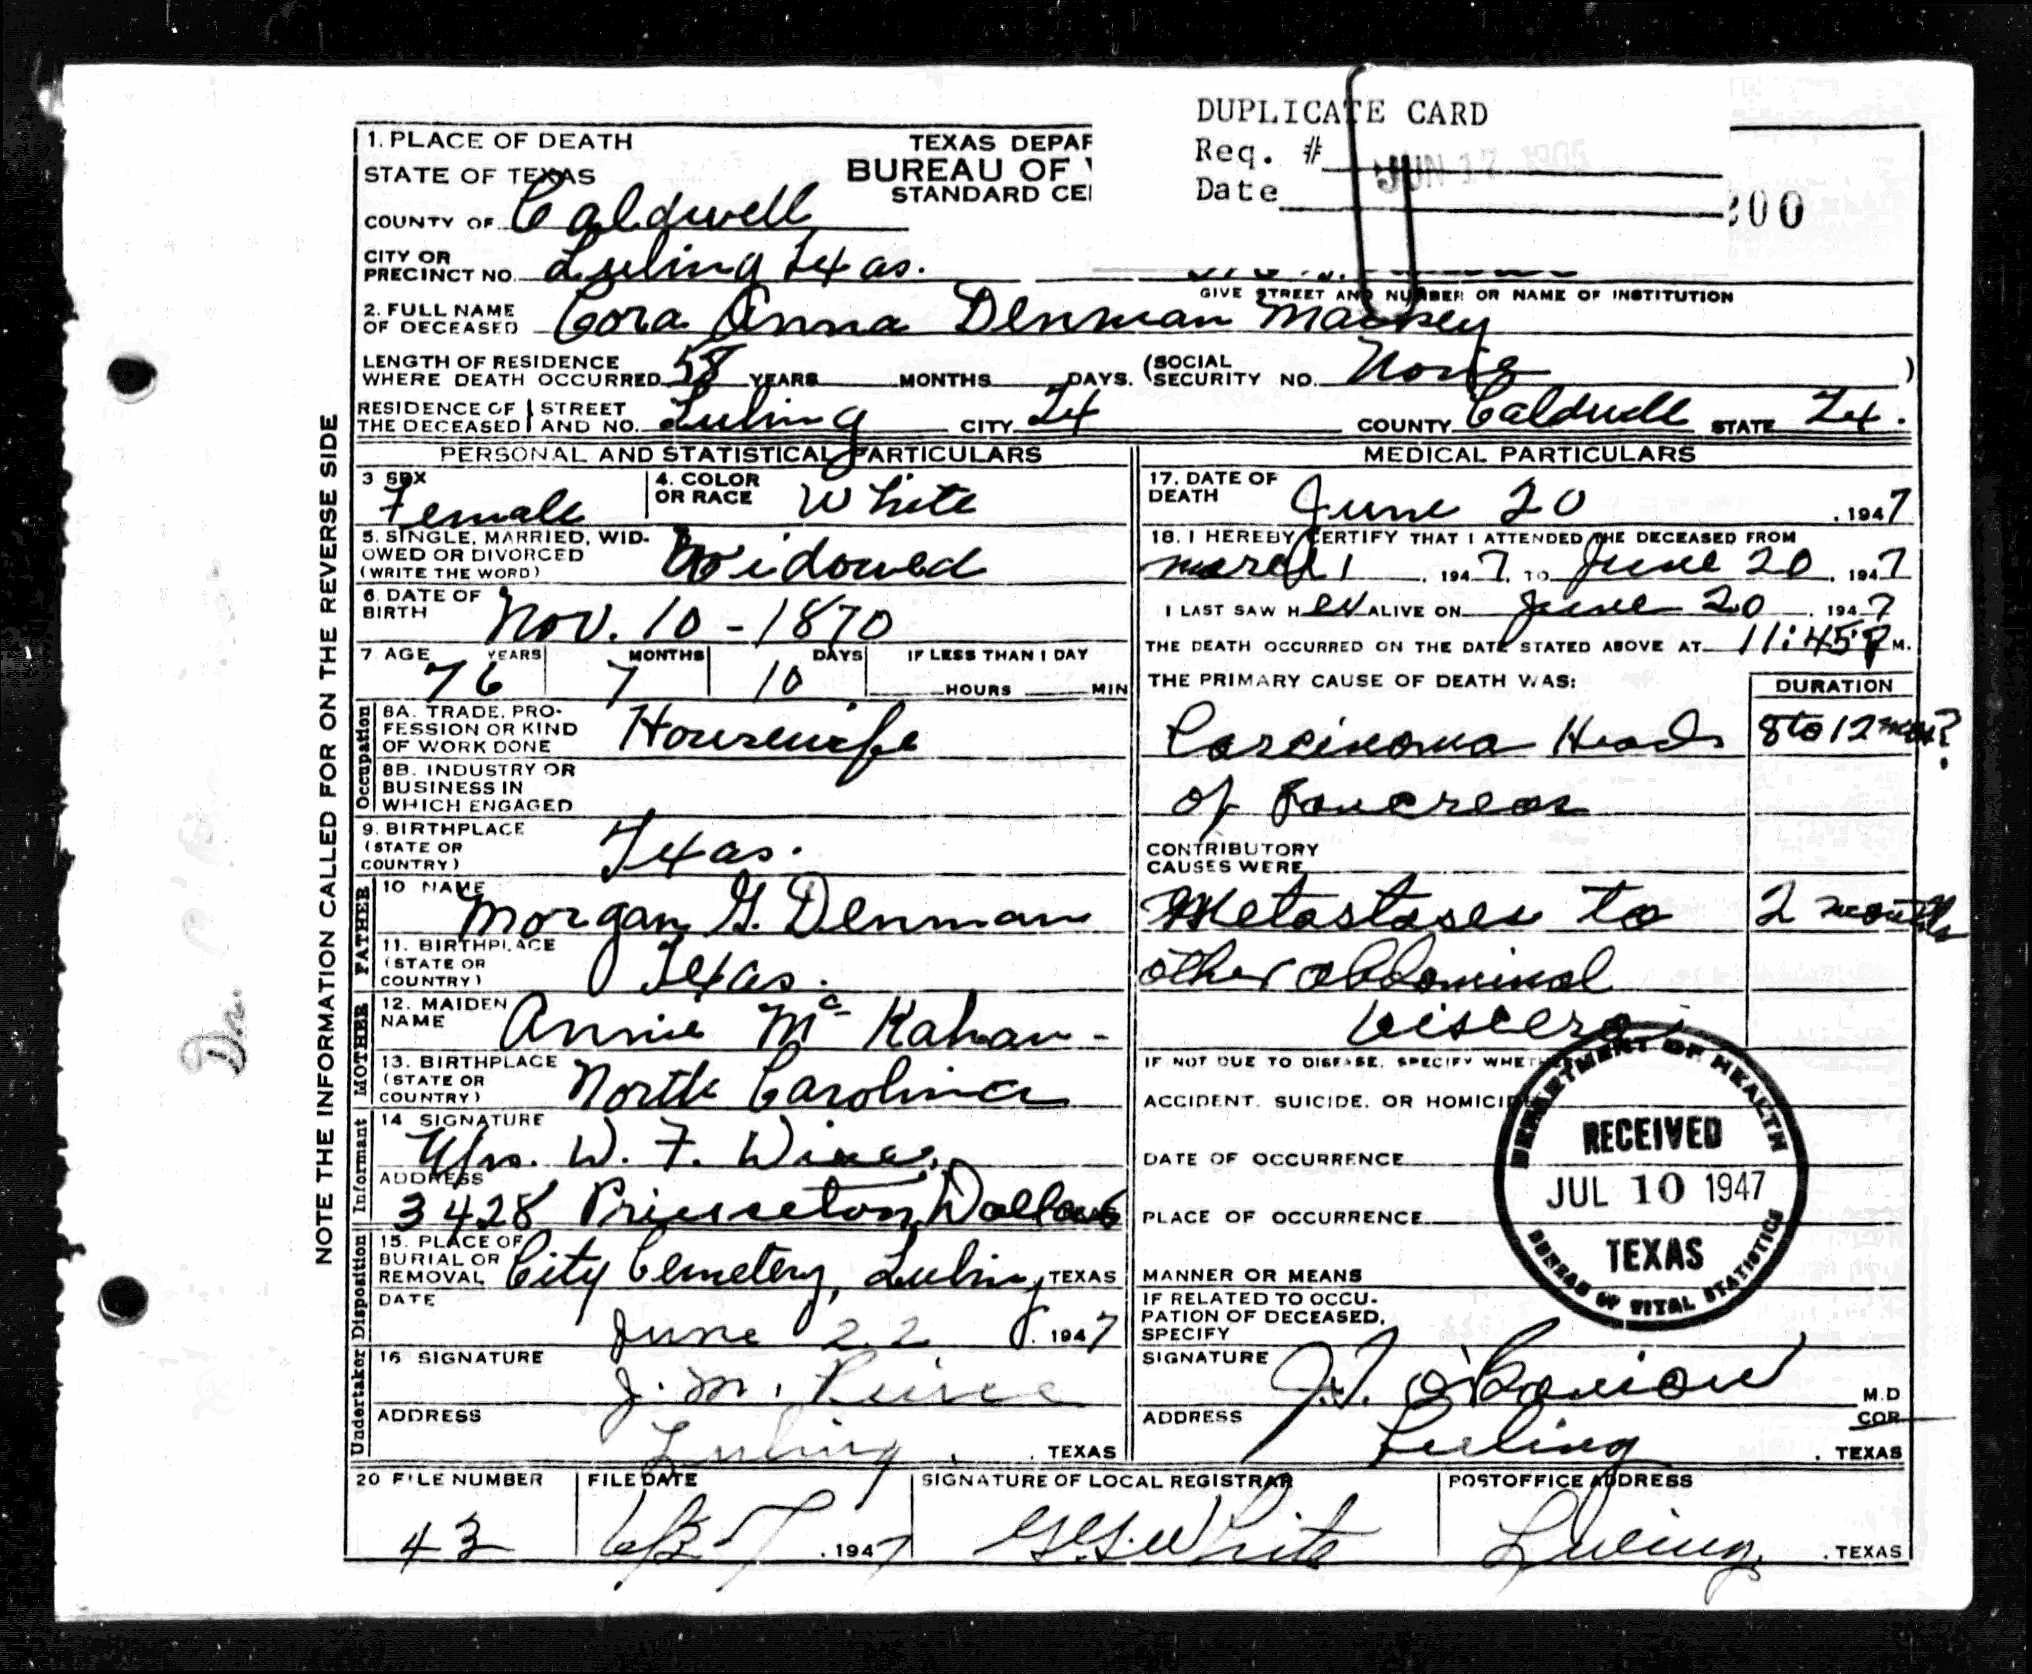 DUPLICATE CARD
Req. #
Date
JUN 17
200
1. PLACE OF DEATH
STATE OF TEXAS
COUNTY OF Caldwell
CITY OR PRECINCT NO. Luling Texas.
TEXAS DEPAR
BUREAU OF V
STANDARD CE
GIVE STREET AND NUMBER OR NAME OF INSTITUTION
2. FULL NAME OF DECEASED Cora Anna Denman Mackey
LENGTH OF RESIDENCE WHERE DEATH OCCURRED 58 YEARS MONTHS DAYS. (SOCIAL SECURITY NO. None )
RESIDENCE OF THE DECEASED STREET AND NO. Luling CITY Tex COUNTY Caldwell STATE Tex.
PERSONAL AND STATISTICAL PARTICULARS
3 SEX Female
4. COLOR OR RACE White
5. SINGLE, MARRIED, WIDOWED OR DIVORCED (WRITE THE WORD) Widowed
6. DATE OF BIRTH Nov. 10 - 1870
7 AGE YEARS MONTHS DAYS IF LESS THAN 1 DAY
76 7 10 HOURS MIN
Occupation
8A. TRADE, PROFESSION OR KIND OF WORK DONE Housewife
8B. INDUSTRY OR BUSINESS IN WHICH ENGAGED
9. BIRTHPLACE (STATE OR COUNTRY) Texas.
FATHER
10 NAME Morgan G. Denman
11. BIRTHPLACE (STATE OR COUNTRY) Texas.
MOTHER
12. MAIDEN NAME Annie Mc Kahan -
13. BIRTHPLACE (STATE OR COUNTRY) North Carolina
Informant
14 SIGNATURE Mrs. W. F.
ADDRESS 3428 Princeton, Dallas
Disposition
15. PLACE OF BURIAL OR REMOVAL City Cemetery, Luling, TEXAS
DATE June 22, 1947
Undertaker
16 SIGNATURE J. M. Pierce
ADDRESS Luling, TEXAS
MEDICAL PARTICULARS
17. DATE OF DEATH June 20, 1947
18. I HEREBY CERTIFY THAT I ATTENDED THE DECEASED FROM
March 1, 1947, TO June 20, 1947
I LAST SAW H er ALIVE ON June 20, 1947
THE DEATH OCCURRED ON THE DATE STATED ABOVE AT 11:45 P M.
THE PRIMARY CAUSE OF DEATH WAS: DURATION
Carcinoma Head 8 to 12 mos?
of Pancreas
CONTRIBUTORY CAUSES WERE
Metastases to 2 months
other abdominal
viscera
IF NOT DUE TO DISEASE, SPECIFY WHETH
ACCIDENT, SUICIDE, OR HOMICIDE
DATE OF OCCURRENCE
PLACE OF OCCURRENCE
MANNER OR MEANS
IF RELATED TO OCCUPATION OF DECEASED, SPECIFY
DEPARTMENT OF HEALTH
RECEIVED
JUL 10 1947
TEXAS
BUREAU OF VITAL STATISTICS
SIGNATURE J.T. O'Banion M.D
COR
ADDRESS Luling, TEXAS
20 FILE NUMBER FILE DATE SIGNATURE OF LOCAL REGISTRAR POSTOFFICE ADDRESS
43 , 1947 White Luling, TEXAS
NOTE THE INFORMATION CALLED FOR ON THE REVERSE SIDE
Dr.